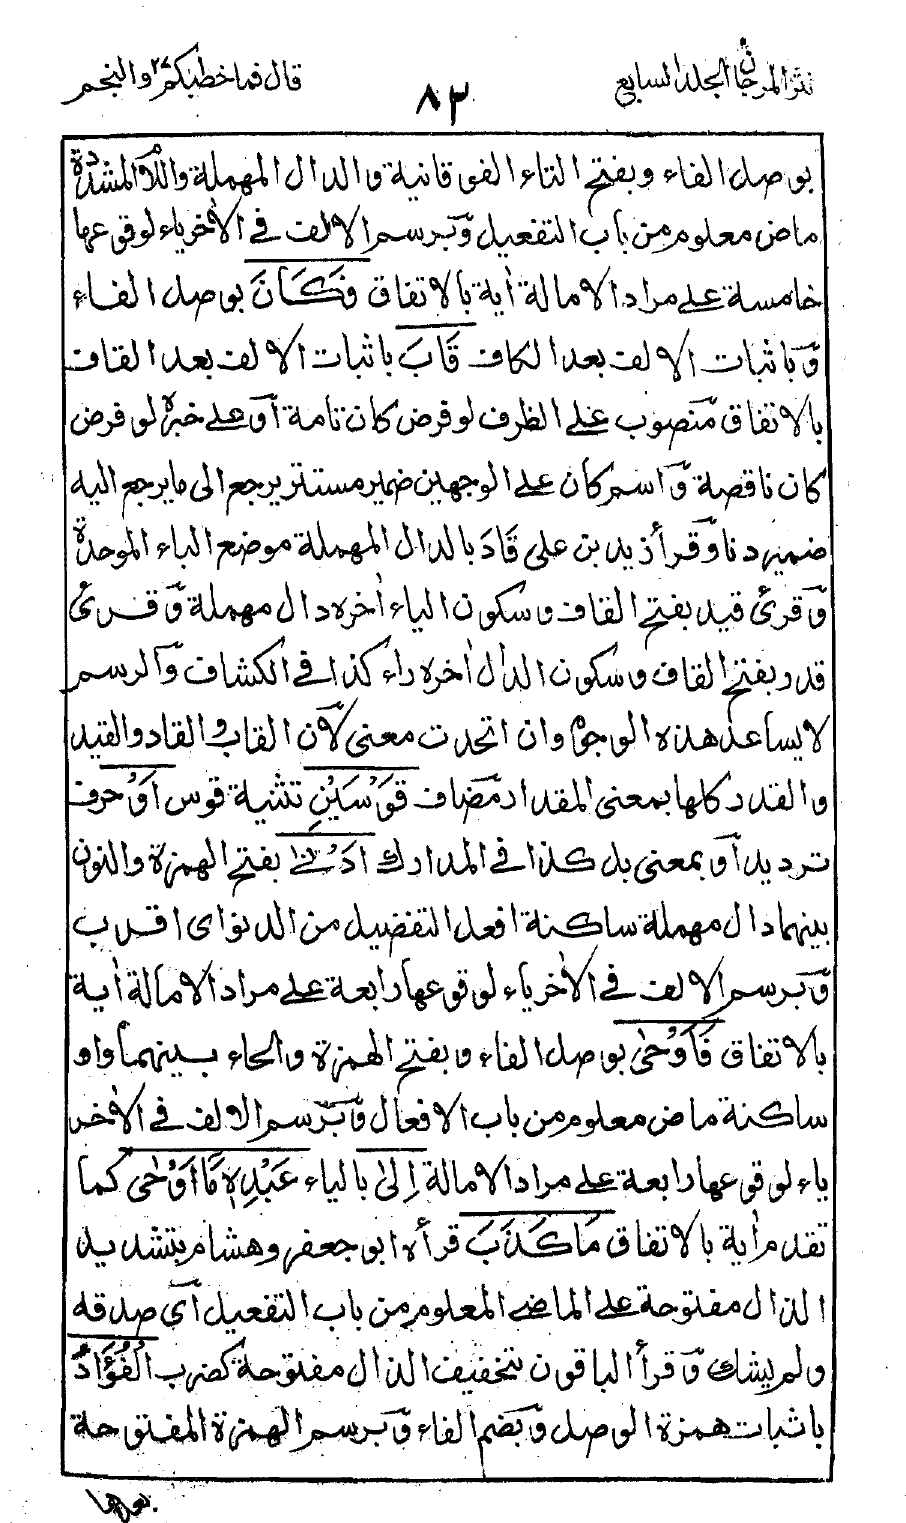 نثر المرجان الجلد السابع
٨٢
قال فما خطبكم ٢٧ والنجم
بوصل الفاء وبفتح التاء الفوقانية والدال المهملة واللام المشددة
ماض معلوم من باب التفعيل وبرسم الالف في الأخر ياء لوقوعها
خامسة على مراد الامالة أية بالاتفاق فَكَانَ بوصل الفاء
وباثبات الالف بعد الكاف قَابَ باثبات الالف بعد القاف
بالاتفاق منصوب على الظرف لو فرض كان تامة او على خبره لو فرض
كان ناقصة واسم كان على الوجهين ضمير مستتر يرجع الى ما يرجع اليه
ضمير دنا وقرأ زيد بن على قَادَ بالدال المهملة موضع الباء الموحدة
وقرئ قيد بفتح القاف وسكون الياء أخره دال مهملة وقرئ
قدر بفتح القاف وسكون الدال أخره راء كذا في الكشاف والرسم
لا يساعد هذه الوجوه وان اتحدت معنى لأن القاب والقاد والقيد
والقدر كلها بمعنى المقدار مضاف قَوْسَيْنِ تثنية قوس اَوْ حرف
ترديد أو بمعنى بل كذا في المدارك اَدْنٰى بفتح الهمزة والنون
بينهما دال مهملة ساكنة افعل التفضيل من الدنو اى اقرب
وبرسم الالف في الأخر ياء لوقوعها رابعة على مراد الامالة أية
بالاتفاق فَاَوْحٰى بوصل الفاء وبفتح الهمزة والحاء بينهما واو
ساكنة ماض معلوم من باب الافعال وبرسم الالف في الأخر
ياء لوقوعها رابعة على مراد الامالة اِلٰى بالياء عَبْدِهٖ مَا اَوْحٰى كما
تقدم أية بالاتفاق مَا كَذَبَ قرأه ابو جعفر وهشام بتشديد
الذال مفتوحة على الماضي المعلوم من باب التفعيل أى صدقه
ولم يشك وقرأ الباقون بتخفيف الذال مفتوحة كضرب الْفُؤَادُ
باثبات همزة الوصل وبضم الفاء وبرسم الهمزة المفتوحة
بعدها